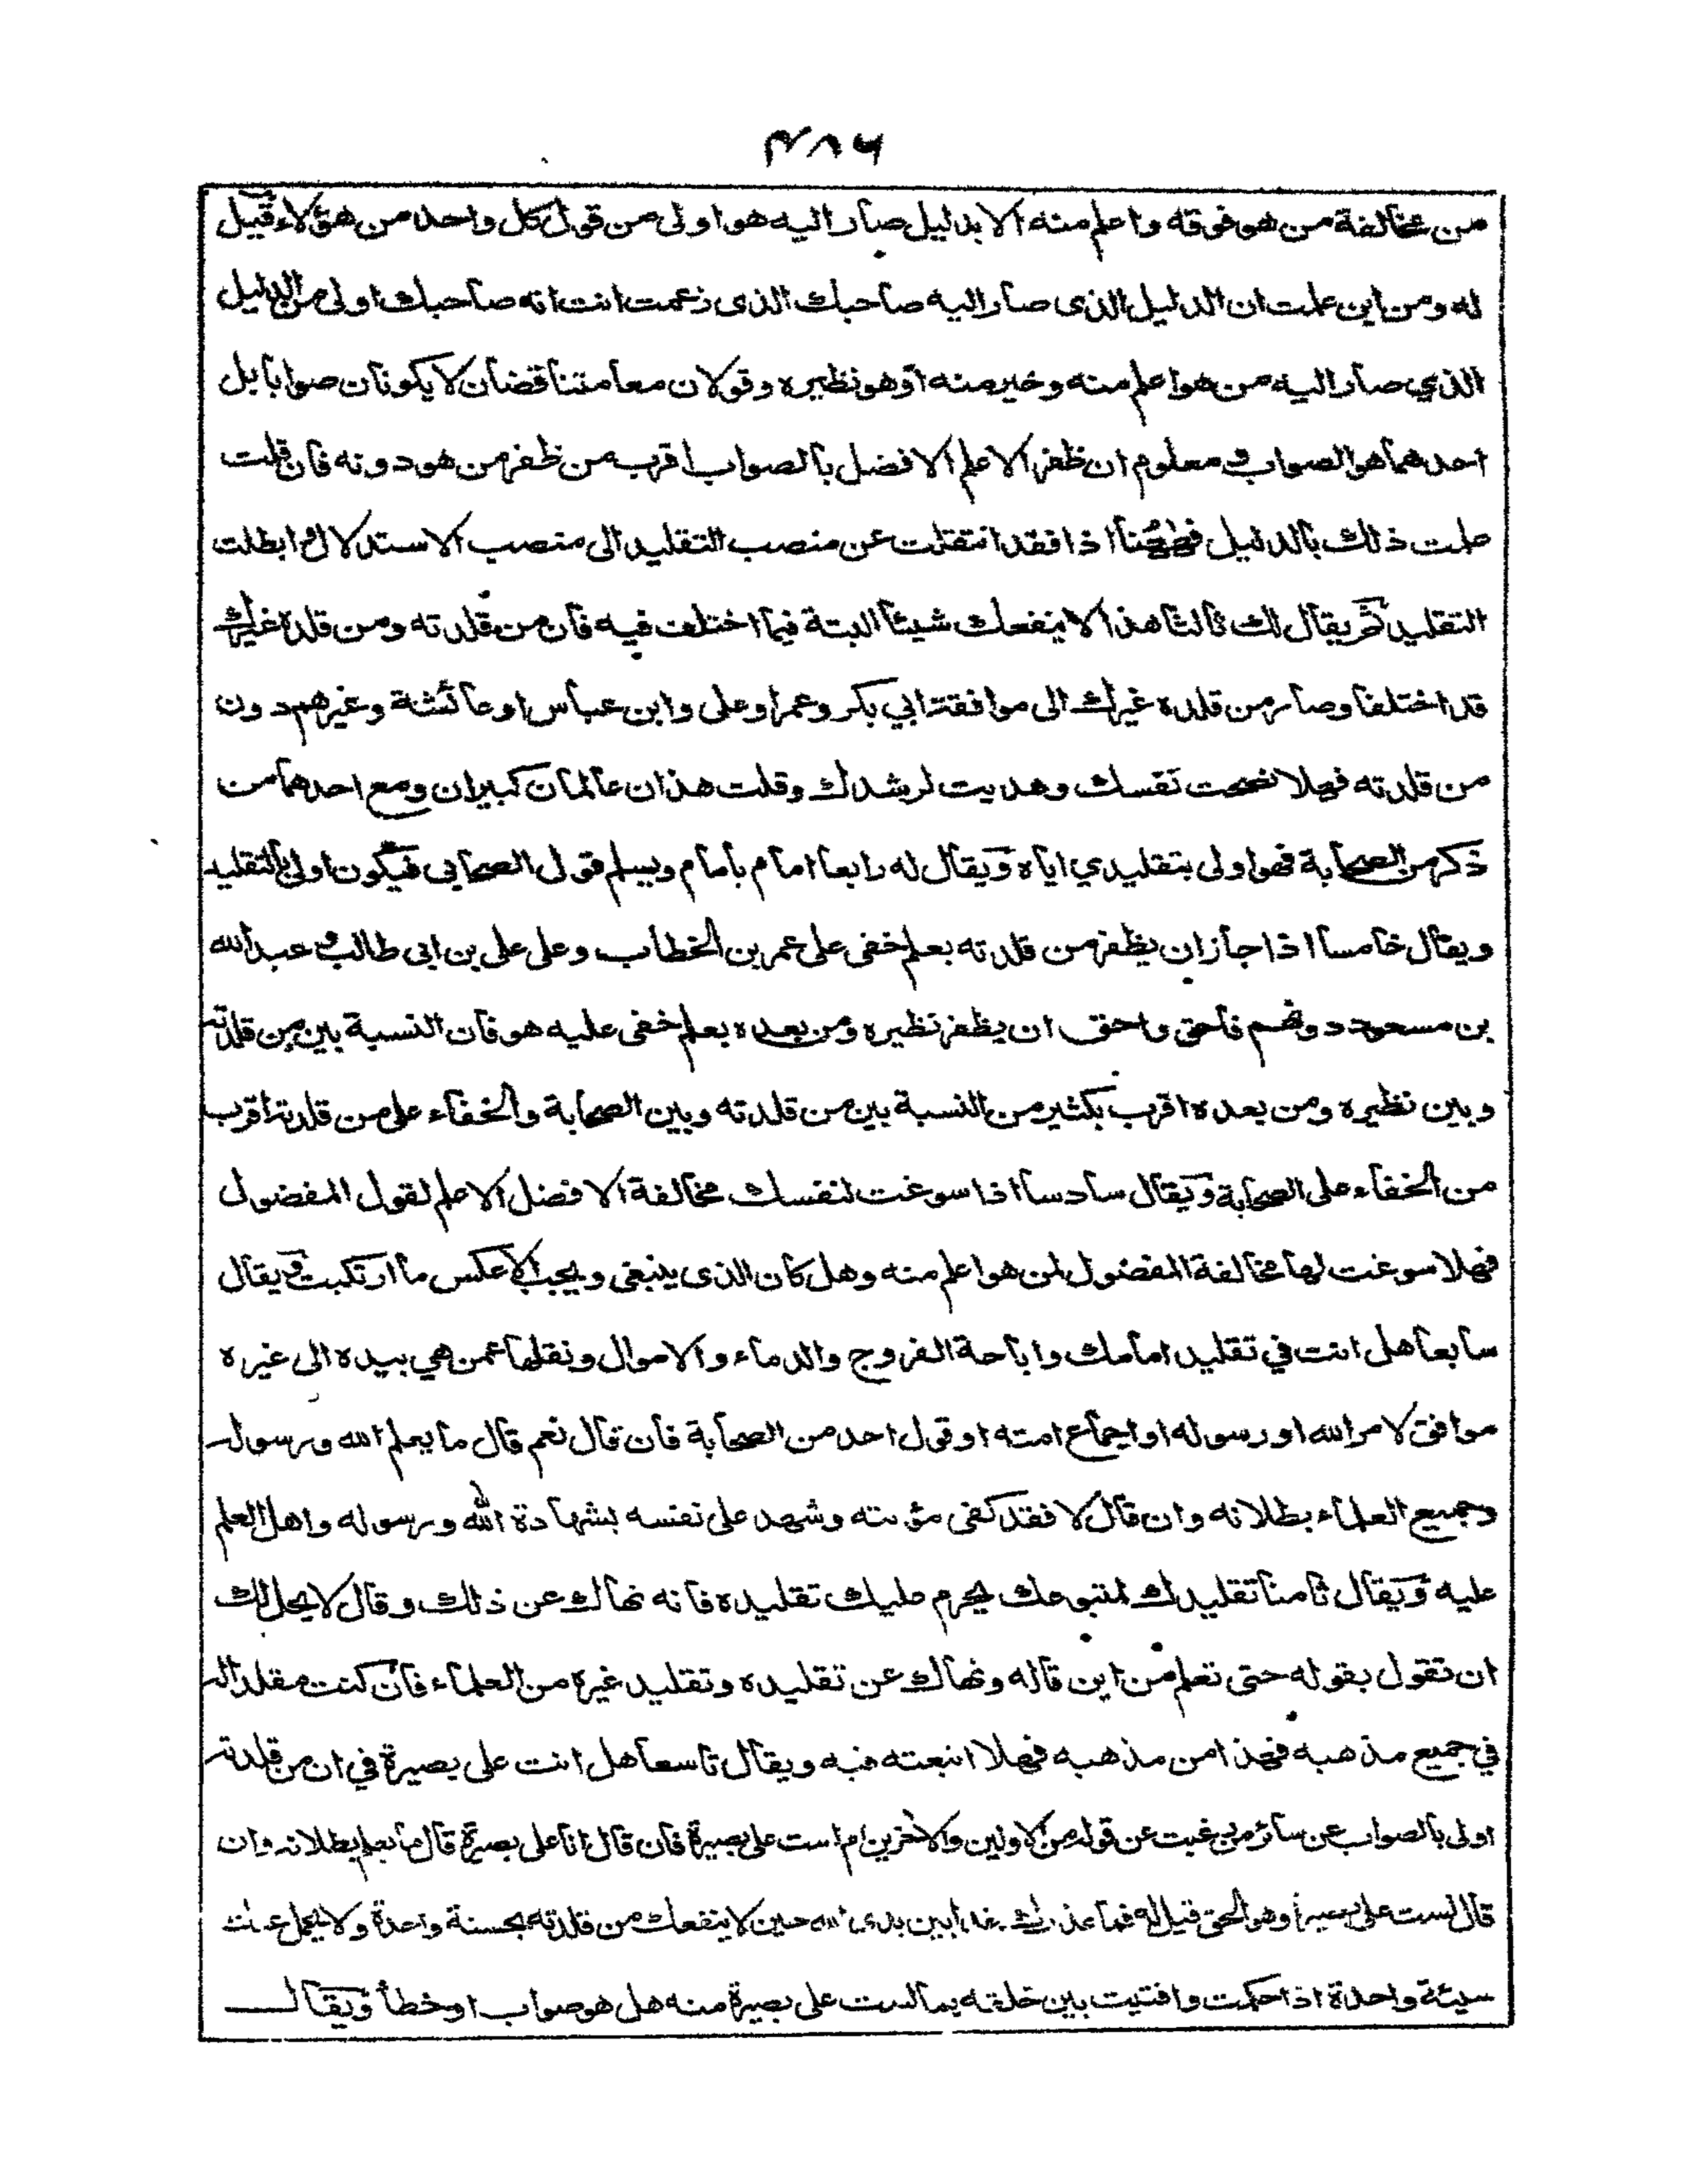 ٤٨٦
من مخالفة من هو فوقه واعلم منه الا بدليل صار اليه هو اولى من قول كل واحد من هؤلاء قيل
له ومن اين علمت ان الدليل الذى صار اليه صاحبك الذى زعمت انت انه صاحبك اولى من الدليل
الذي صار اليه من هو اعلم منه وخير منه او هو نظيره وقولان معا متناقضان لا يكونان صوابا بل
احدهما هو الصواب و معلوم ان ظفر الاعلم الافضل بالصواب اقرب من ظفر من هو دونه فان قلت
علمت ذلك بالدليل فههنا اذا فقد انتقلت عن منصب التقليد الى منصب الاستدلال وابطلت
التقليد ثم يقال لك ثالثا هذا لا ينفعك شيئا البتة فيما اختلف فيه فان من قلدته ومن قلده غيرك
قد اختلفا وصار من قلده غيرك الى موافقة ابي بكر وعمر او على وابن عباس او عائشة وغيرهم دون
من قلدته فهلا نصحت نفسك وهديت لرشدك وقلت هذان عالمان كبيران ومع احدهما من
ذكر من الصحابة فهو اولى بتقليدي اياه ويقال له رابعا امام بامام ويسلم قول الصحابى فيكون اولى بالتقليد
ويقال خامسا اذا جاز ان يظفر من قلدته بعلم خفى على عمر بن الخطاب وعلى على بن ابى طالب و عبد الله
بن مسعود دونهم فاحق واحق ان يظفر نظيره ومن بعده بعلم خفى عليه هو فان النسبة بين من قلدته
وبين نظيره ومن بعده اقرب بكثير من النسبة بين من قلدته وبين الصحابة والخفاء على من قلدته اقرب
من الخفاء على الصحابة ويقال سادسا اذا سوغت لنفسك مخالفة الافضل الاعلم لقول المفضول
فهلا سوغت لها مخالفة المفضول لمن هو اعلم منه وهل كان الذى ينبغى ويجب الا عكس ما ارتكبت ويقال
سابعا هل انت في تقليد امامك واباحة الفروج والدماء والاموال ونقلها عمن هي بيده الى غيره
موافق لامر الله او رسوله او اجماع امته او قول احد من الصحابة فان قال نعم قال ما يعلم الله ورسوله
وجميع العلماء بطلانه وان قال لا فقد كفى مؤنته وشهد على نفسه بشهادة الله ورسوله واهل العلم
عليه ويقال ثامنا تقليدك لمتبوعك يحرم عليك تقليده فانه نهاك عن ذلك وقال لا يحل لك
ان تقول بقوله حتى تعلم من اين قاله ونهاك عن تقليده وتقليد غيره من العلماء فان كنت مقلدا له
في جميع مذهبه فهذا من مذهبه فهلا اتبعته فيه ويقال تاسعا هل انت على بصيرة في ان من قلدته
اولى بالصواب عن سائر من رغبت عن قوله من الاولين والاخرين ام لست على بصيرة فان قال انا على بصيرة قال ما يعلم بطلانه وان
قال لست على بصيرة وهو الحق قيل له فما عذرك غدا بين يدى الله حين لا ينفعك من قلدته بحسنة واحدة ولا يحمل عنك
سيئة واحدة اذا حكمت وافتيت بين خلقه بما لست على بصيرة منه هل هو صواب او خطأ ويقال